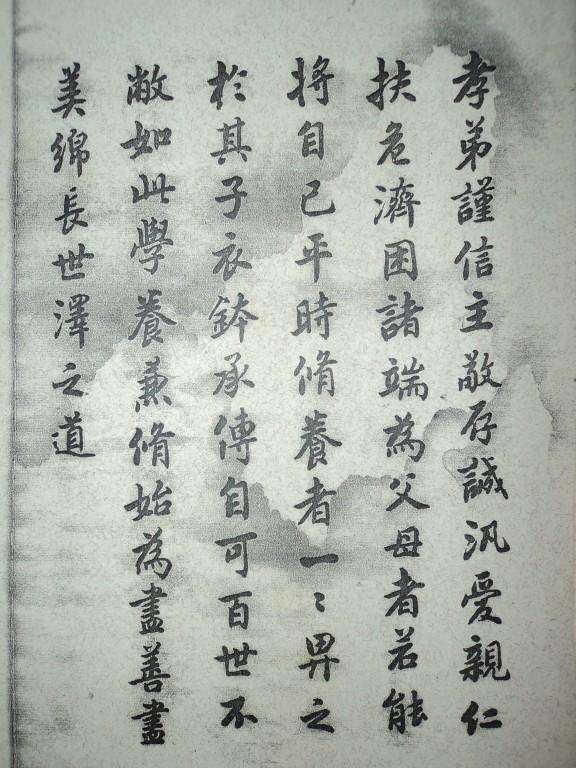 孝弟謹信主敬存誠汎愛親仁
扶危濟困諸端為父母者若能
將自己平時脩養者一〻畀之
於其子衣鉢承傳自可百世不
敝如此學養兼脩始為盡善盡
美綿長世澤之道